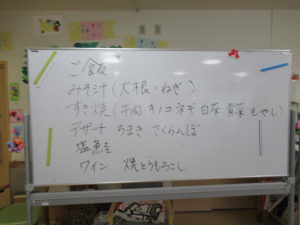 ご飯
みそ汁(大根・ねぎ)
すき焼(牛肉 キノコ ネギ 白菜 青菜 もやし)
デザート ちまき・さくらんぼ
塩鮭
ワイン 焼とうもろこし